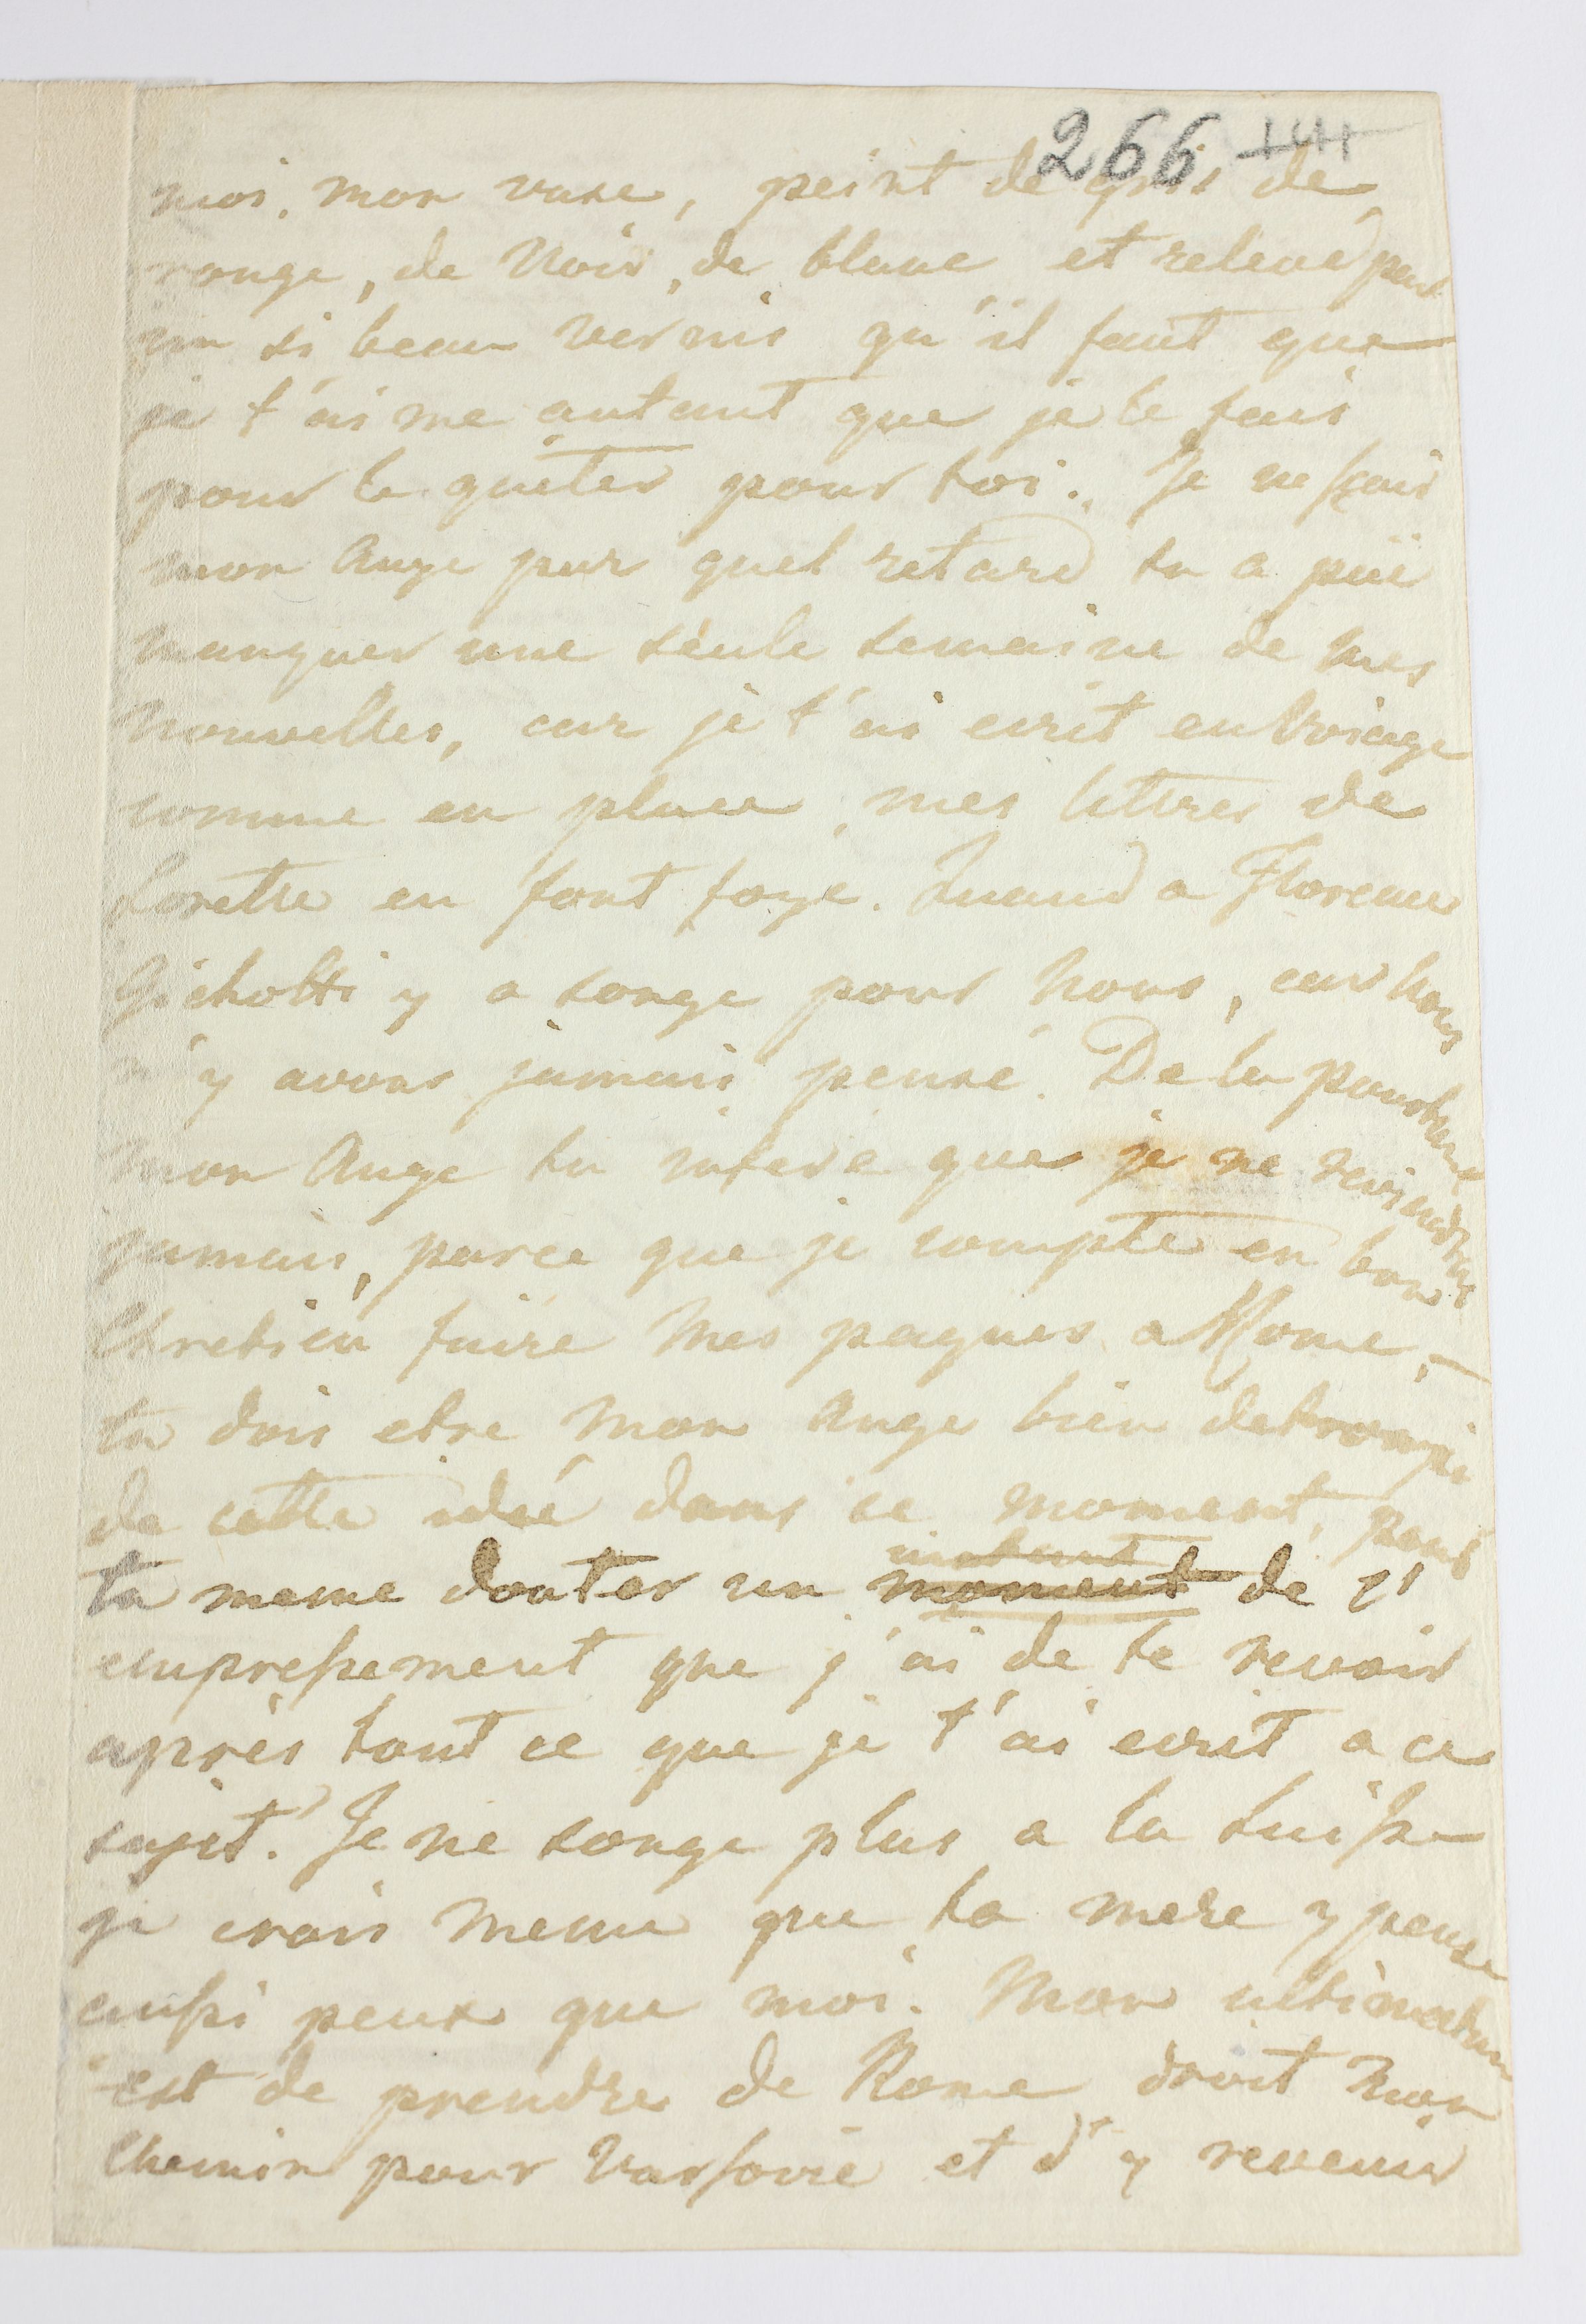 266
moi. mon vase, peint de gris de
rouge, de noir, de blanc et relevé par
un si beau vernis qu'il faut que
je t'aime autant que je le fais
pour le quéter pour toi. Je ne sçais
mon Ange par quel retard tu a pûe
manquer une séule semaine de mes
nouvelles, car je t'ai ecrit en voiage
comme en place, mes lettres de
Lorette en font foye. Quand a Florence
Gicholtti y a songe pour nous, car nous
n'y avons jamais pensé. De la pourtant
mon Ange tu infere que je ne reviendrai
jamais, parce que je compte en bon
Chretien faire mes paques a Rome,
tu dois etre mon Ange bien detrompé
de cette idée dans ce moment, peus
instant
tu meme douter un moment de l'
empressement que j'ai de te revoir
après tout ce que je t'ai ecrit a ce
sujet. Je ne songe plus a la Suisse
je crois meme que ta mere y pense
aussi peux que moi. Mon ultimatum
est de prendre de Rome droit mon
Chemin pour Varsovie et d'y revenir